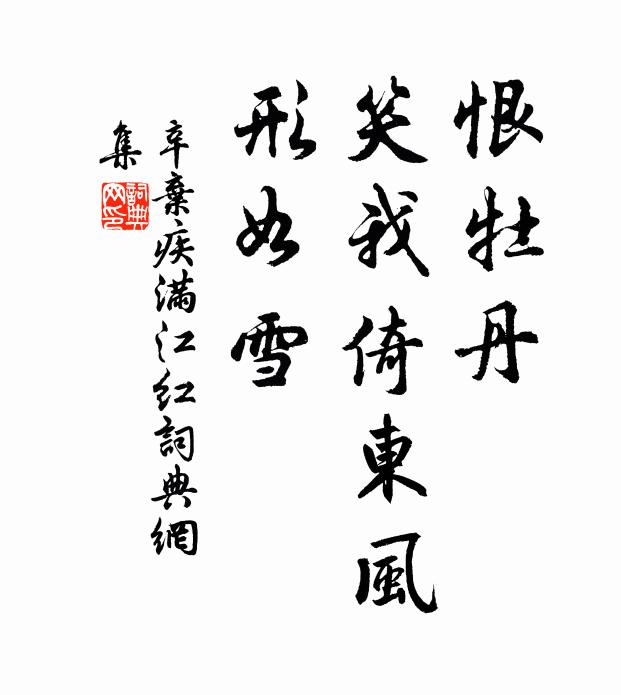 恨牡丹
笑我倚東風
形如雪
辛棄疾滿江紅詞典網
集
詞典网印